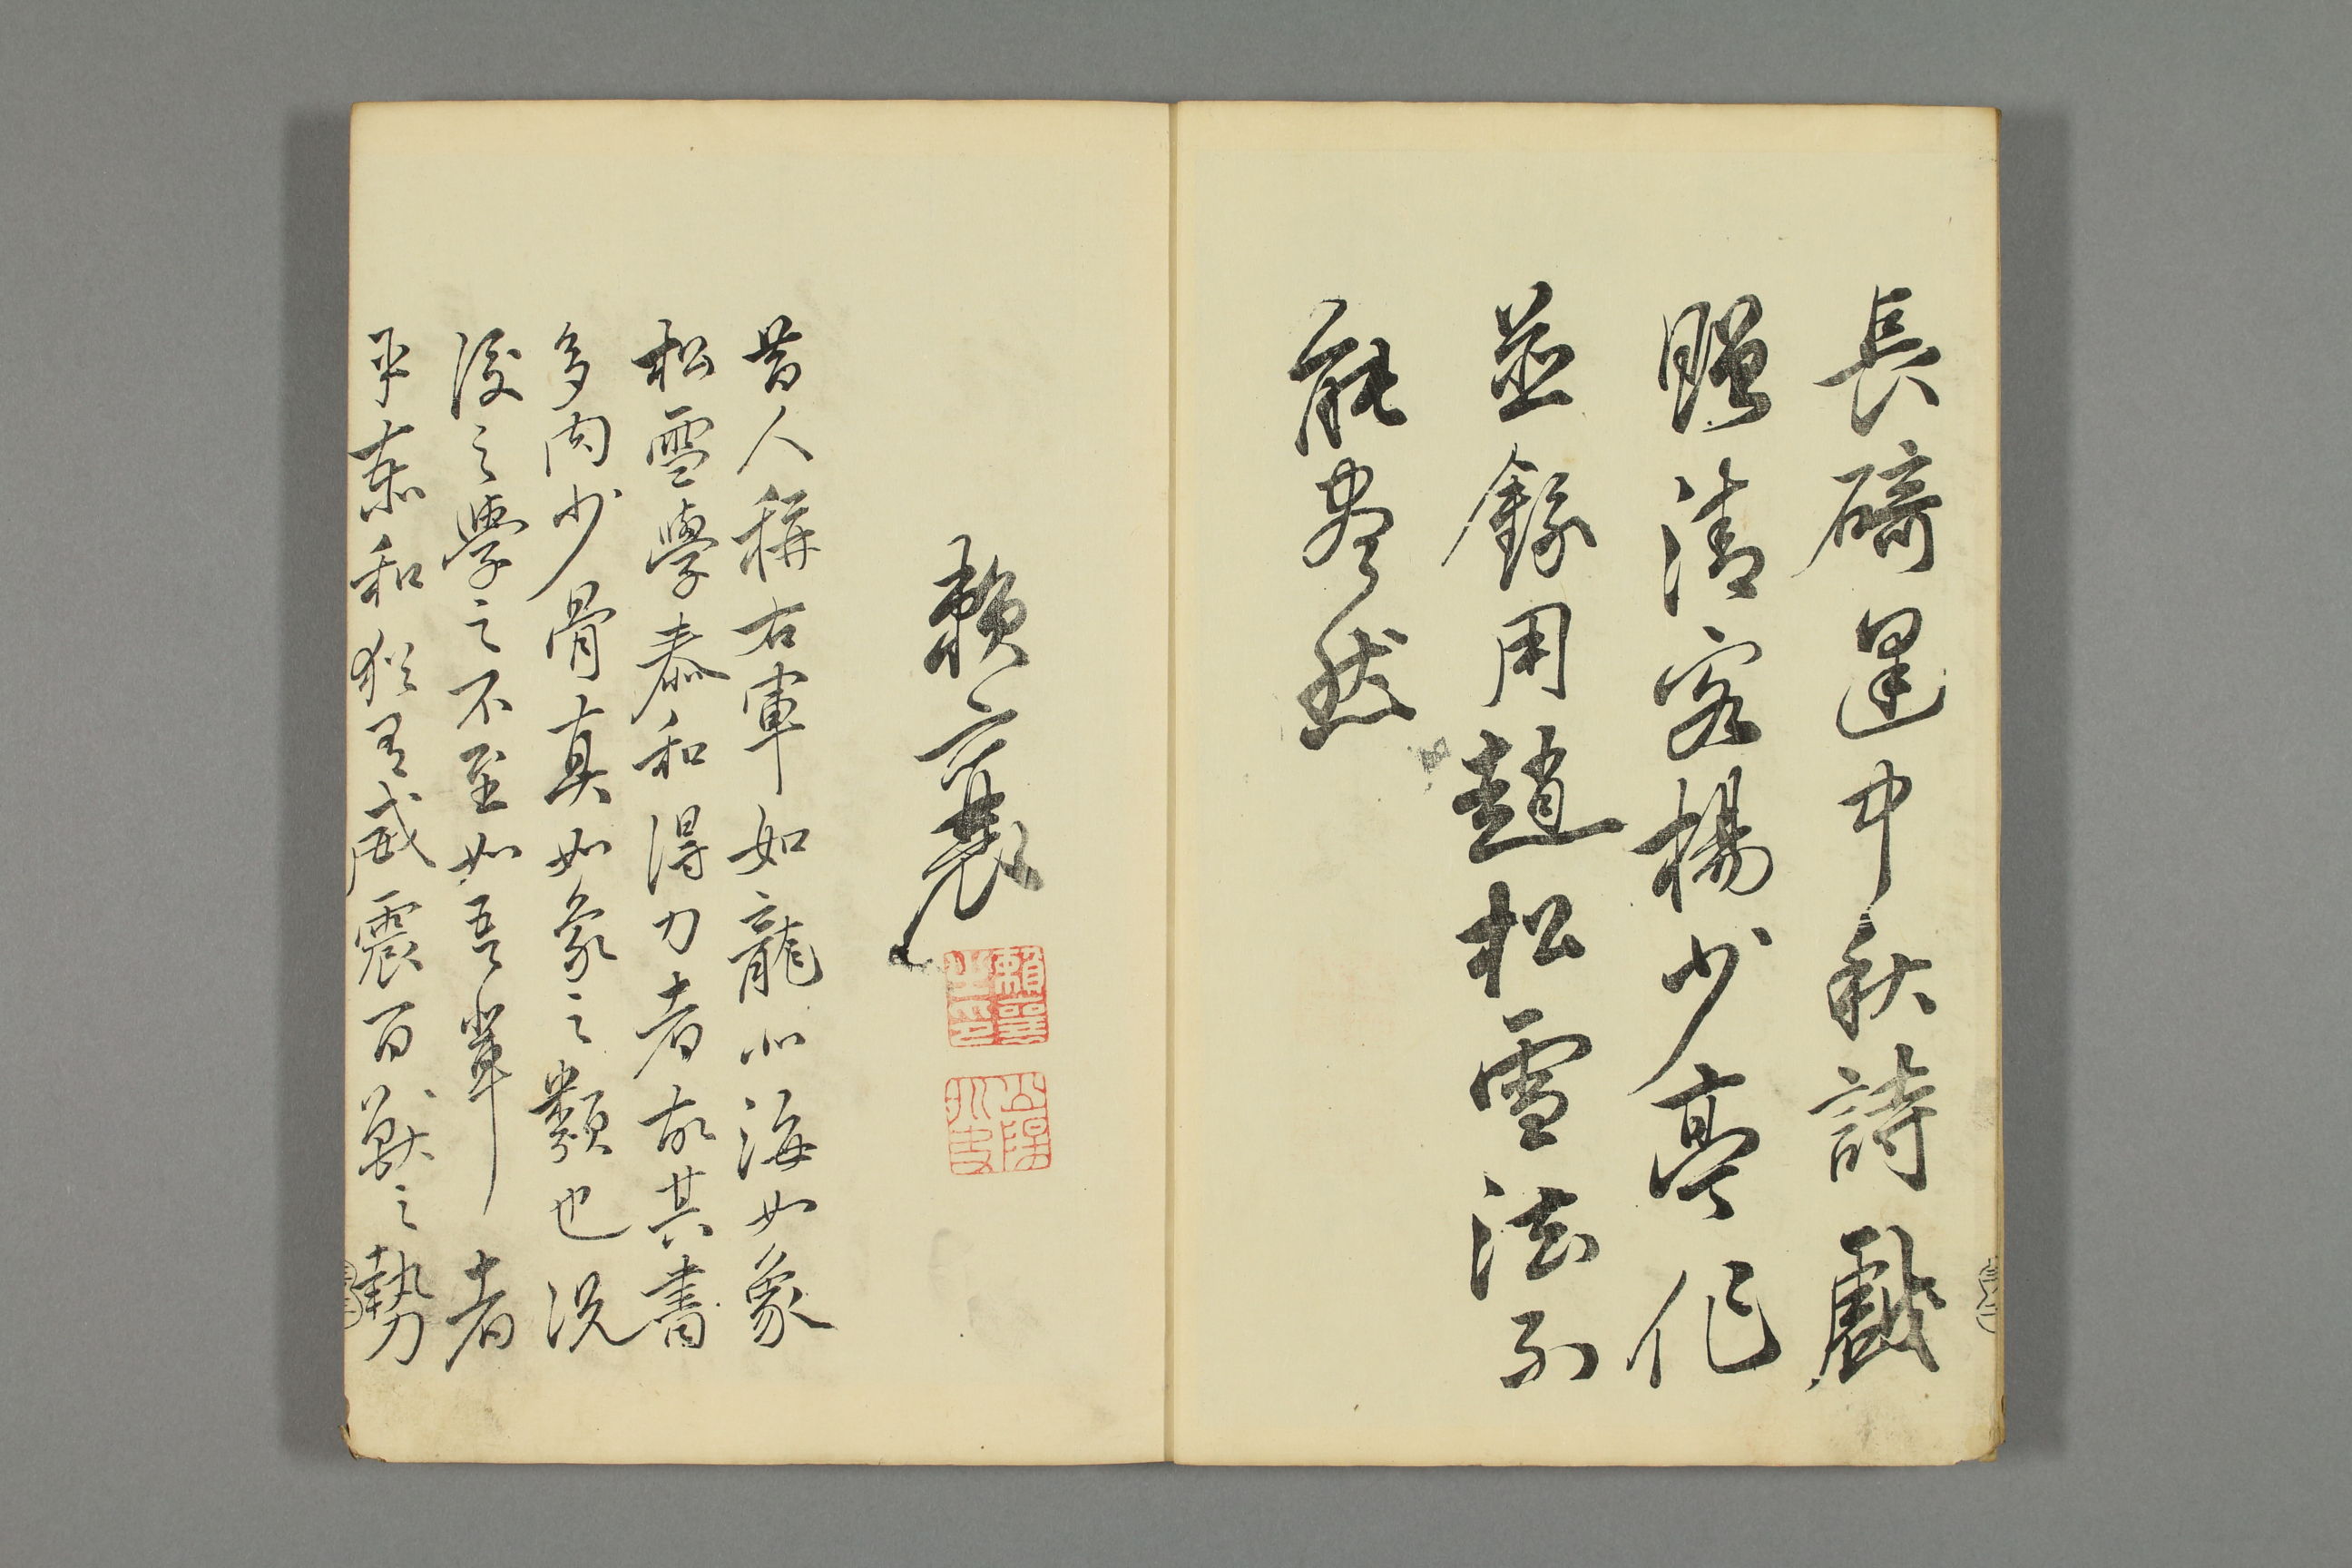 長碕逞中秋詩戲
贈清客楊少亭作
並錄用趙松雪法不
能盡然
賴襄
昔人稱右軍如龍北海如象
松雪學泰和得力者故其書
多肉少骨真如象之類也況
後之學之不至如吾輩者
乎泰和猶有威震百獸之勢